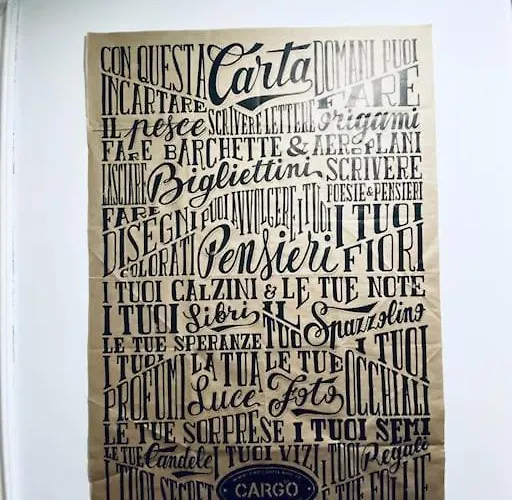 CON QUESTA Carta DOMANI PUOI
INCARTARE FARE
IL pesce SCRIVERE LETTERE origami
FARE BARCHETTE & AEROPLANI
LASCIARE Bigliettini SCRIVERE
POESIE & PENSIERI
FARE PUOI AVVOLGERE I TUOI I TUOI
DISEGNI Pensieri FIORI
COLORATI
I TUOI CALZINI & LE TUE NOTE
I TUOI Libri IL Spazzolino
LE TUE SPERANZE TUO
I TUOI LA TUA LE TUE I TUOI
PROFUMI Luce Foto OCCHIALI
LE TUE SORPRESE I TUOI SEMI
LE TUE Candele I TUOI VIZI I TUOI Regali
I TUOI SECRET CARGO E TUE FOLLIE